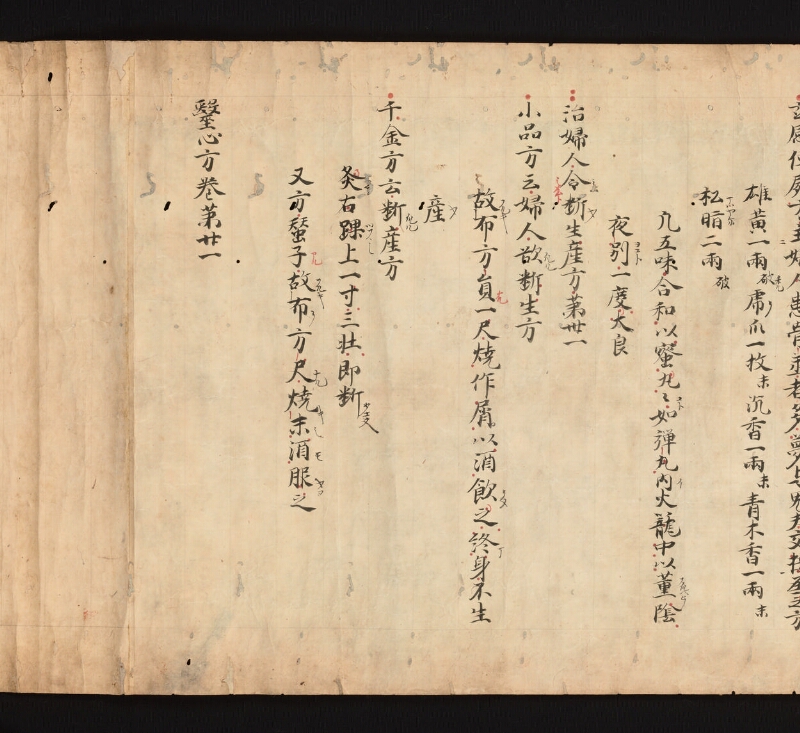 雄黄一兩破虎爪一枚末沉香一兩末青木香一兩末
松脂二兩破
凢五味合和以蜜丸〻如彈丸內火籠中以薫陰
夜別一度大良
治婦人令断生産方第卅一
小品方云婦人欲断生方
故布方員一尺燒作屑以酒飲之終身不生
産
千金方云断産方
灸右踝上一寸三壮即断
又方蚕子故布方尺燒末酒服之
毉心方卷第廿一